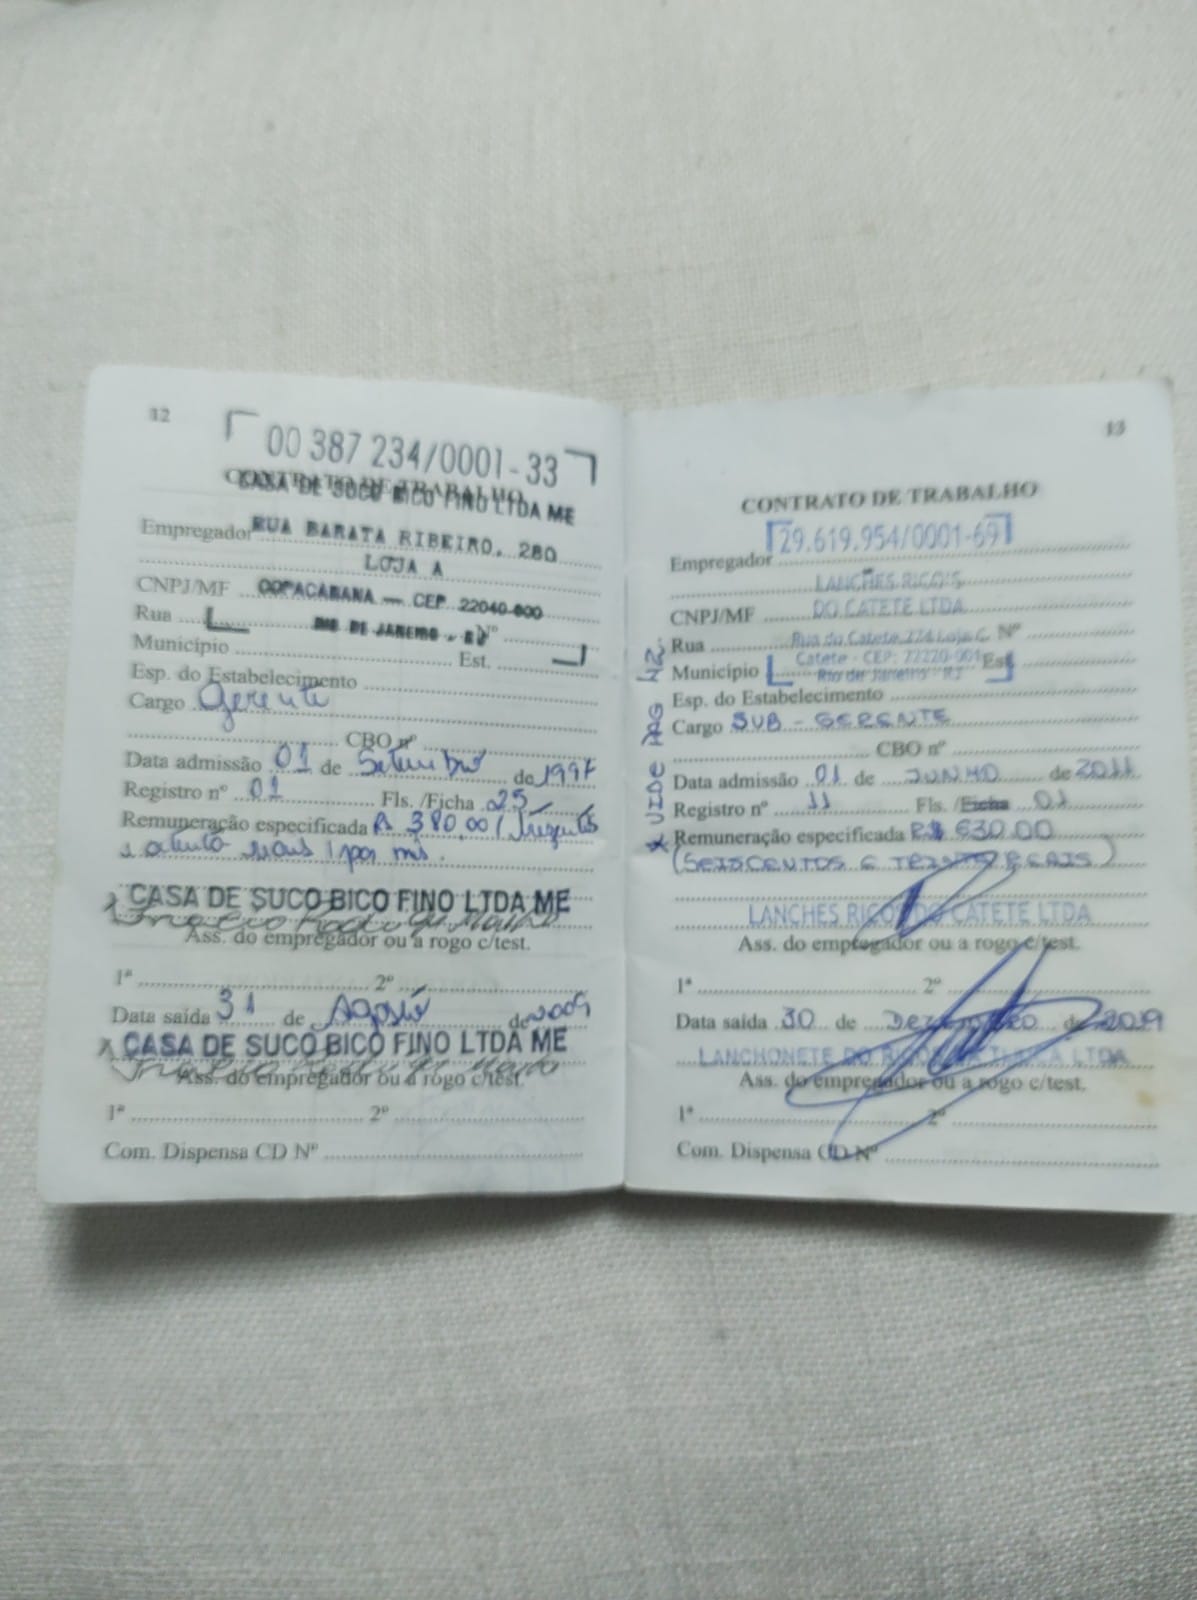 12
00 387 234/0001-33
CONTRATO DE TRABALHO
CASA DE SUCO BICO FINO LTDA ME
Empregador RUA BARATA RIBEIRO, 280
LOJA A
CNPJ/MF COPACABANA — CEP 22040-000
Rua RIO DE JANEIRO - RJ Nº
Município Est.
Esp. do Estabelecimento
Cargo Gerente
CBO nº
Data admissão 01 de Setembro de 1997
Registro nº 01 Fls. /Ficha 25
Remuneração especificada R 380,00 ( Trezentos
e oitenta reais ) por mês.
CASA DE SUCO BICO FINO LTDA ME
Ass. do empregador ou a rogo c/test.
1ª 2º
Data saída 31 de Agosto de 2009
CASA DE SUCO BICO FINO LTDA ME
Ass. do empregador ou a rogo c/test.
1ª 2º
Com. Dispensa CD Nº
13
CONTRATO DE TRABALHO
29.619.954/0001-69
Empregador
LANCHES RICO'S
CNPJ/MF DO CATETE LTDA
Rua Rua do Catete 224 Loja C. Nº
Município Catete - CEP: 22220-001 Est
Rio de Janeiro RJ
Esp. do Estabelecimento
Cargo SUB - GERENTE
CBO nº
Data admissão 01 de JUNHO de 2011
Registro nº 11 Fls. /Ficha 01
Remuneração especificada R$ 630.00
(SEISCENTOS E TRINTA REAIS)
LANCHES RICOS DO CATETE LTDA
Ass. do empregador ou a rogo c/test.
1ª 2º
Data saída 30 de DEZEMBRO de 2019
LANCHONETE DO RICO TIJUCA LTDA
Ass. do empregador ou a rogo c/test.
1ª 2º
Com. Dispensa CD Nº
* VIDE PAG 42.